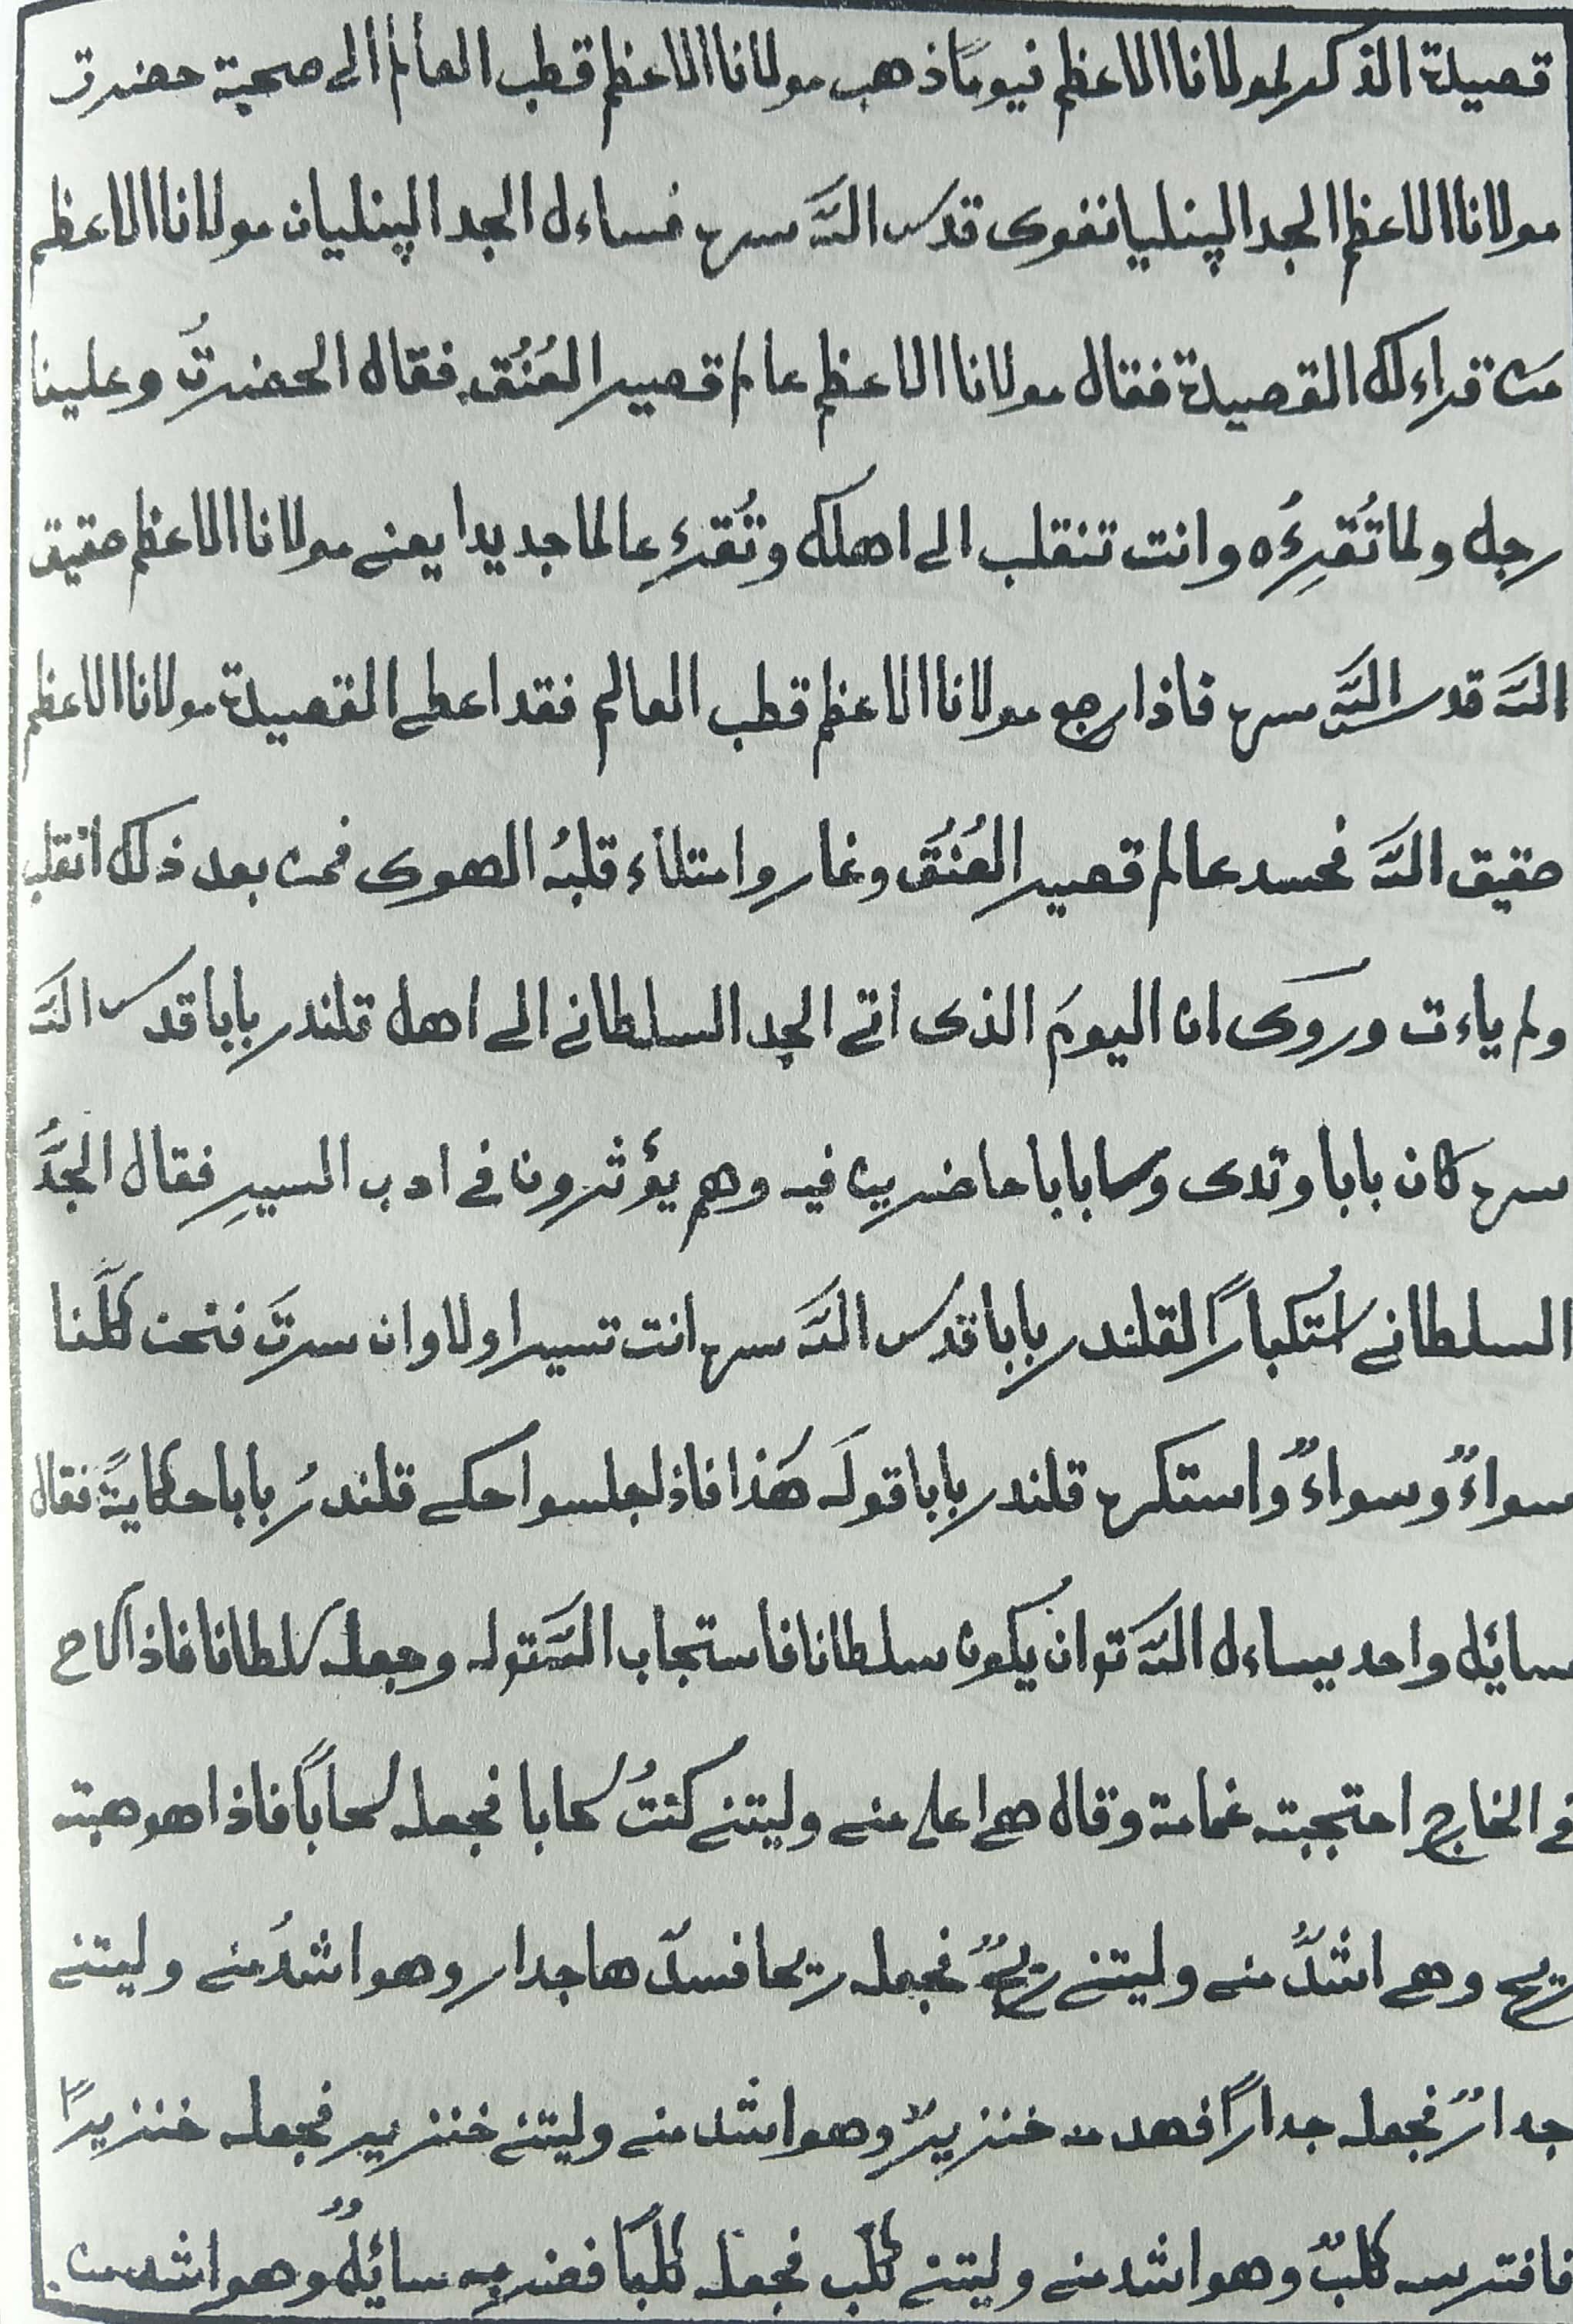 قصيدة الذكر لمولانا الاعظم فيوماً ذهب مولانا الاعظم قطب العالم الى صحبة حضرت
مولانا الاعظم الجد الپنليانفوى قدس الله سره فساءل الجد الپنليان مولانا الاعظم
من قراءلك القصيدة فقال مولانا الاعظم عالم قصير العُنُق فقال الحضرتُ وعلينا
رجل ولما تُقرِءُه وانت تنقلب الى اهلك وتُقرِء عالما جديدا يعنے مولانا الاعظم حقيق
الله قدس الله سره فاذا رجع مولانا الاعظم قطب العالم فقد اعطے القصيدة مولانا الاعظم
حقيق الله فحسد عالم قصير العُنُق وغار وامتلاء قلبُه الهوى فمن بعد ذلك انقلب
ولم ياءت وروى ان اليومَ الذى اتے الجد السلطانے الى اهل قلندر بابا قدس الله
سره كان بابا وتدى وسا بابا حاضرين فيه وهم يؤثرون فے ادب السيرِ فقال الجدُّ
السلطانے استكباراً لقلندر بابا قدس الله سره انت تسير اولا وان سرتَ فنحن كلُّنا
سواءٌ وسواءٌ واستكره قلندر بابا قولَه هَذا فاذا جلسوا حكے قلندرُ بابا حكايةً فقال
سائل واحد يساءل الله تو ان يكون سلطانا فاستجاب الله قوله وجعله سلطانا فاذا لاح
فے الخارج احتجبته غمامة وقال هى اعلى منے وليتنے كنتُ سحابا فجعله سحاباً فاذا هو هبته
ريح وهے اشدُّ منے وليتنے ريحٌ فجعله ريحا فسدّها جدار وهو اشدُ منے وليتنے
جدارٌ فجعله جداراً فهدمه خنزيرٌ وهو اشد منے وليتنے خنزير فجعله خنزيراً
فافترسه كلبٌ وهو اشد منے وليتنے كلب فجعله كلباً فضربه سائلٌ وهو اشد من